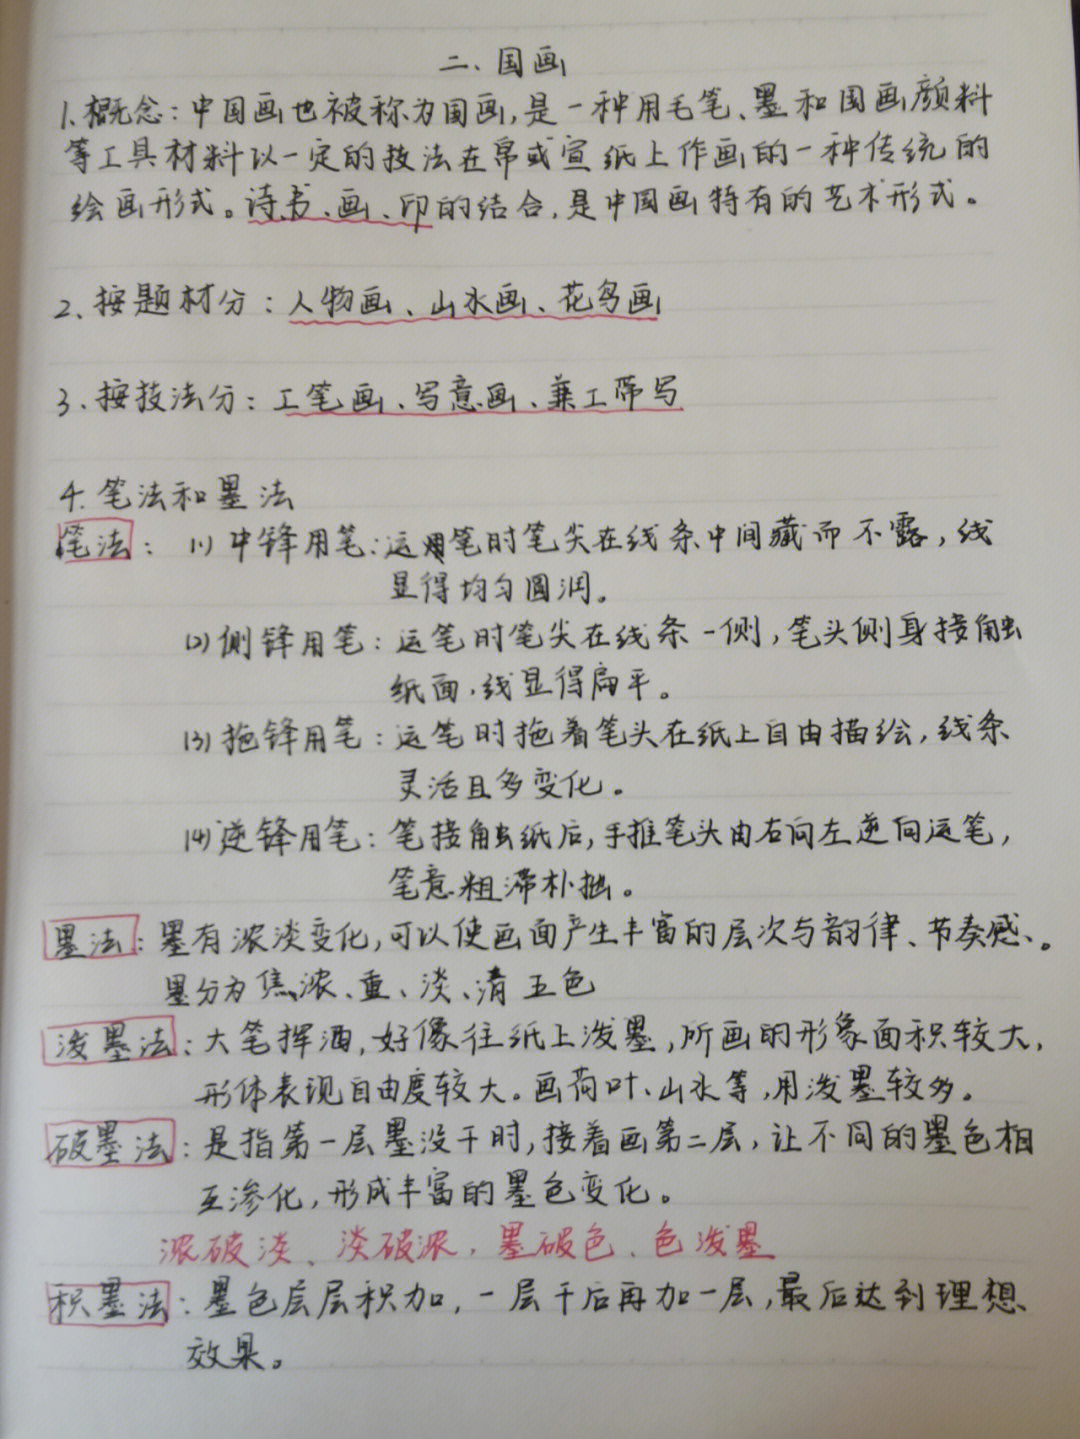 二、国画
1、概念：中国画也被称为国画,是一种用毛笔、墨和国画颜料
等工具材料以一定的技法在帛或宣纸上作画的一种传统的
绘画形式。诗、书、画、印的结合,是中国画特有的艺术形式。
2、按题材分：人物画、山水画、花鸟画
3、按技法分：工笔画、写意画、兼工带写
4.笔法和墨法
笔法：(1)中锋用笔:运用笔时笔尖在线条中间藏而不露,线
显得均匀圆润。
(2)侧锋用笔：运笔时笔尖在线条一侧,笔头侧身接触
纸面,线显得扁平。
(3)拖锋用笔：运笔时拖着笔头在纸上自由描绘,线条
灵活且多变化。
(4)逆锋用笔：笔接触纸后,手推笔头由右向左逆向运笔,
笔意粗滞朴拙。
墨法：墨有浓淡变化,可以使画面产生丰富的层次与韵律、节奏感、。
墨分为焦、浓、重、淡、清五色
泼墨法：大笔挥洒,好像往纸上泼墨,所画的形象面积较大,
形体表现自由度较大。画荷叶、山水等,用泼墨较多。
破墨法：是指第一层墨没干时,接着画第二层,让不同的墨色相
互渗化,形成丰富的墨色变化。
浓破淡、淡破浓,墨破色、色泼墨
积墨法：墨色层层积加,一层干后再加一层,最后达到理想
效果。